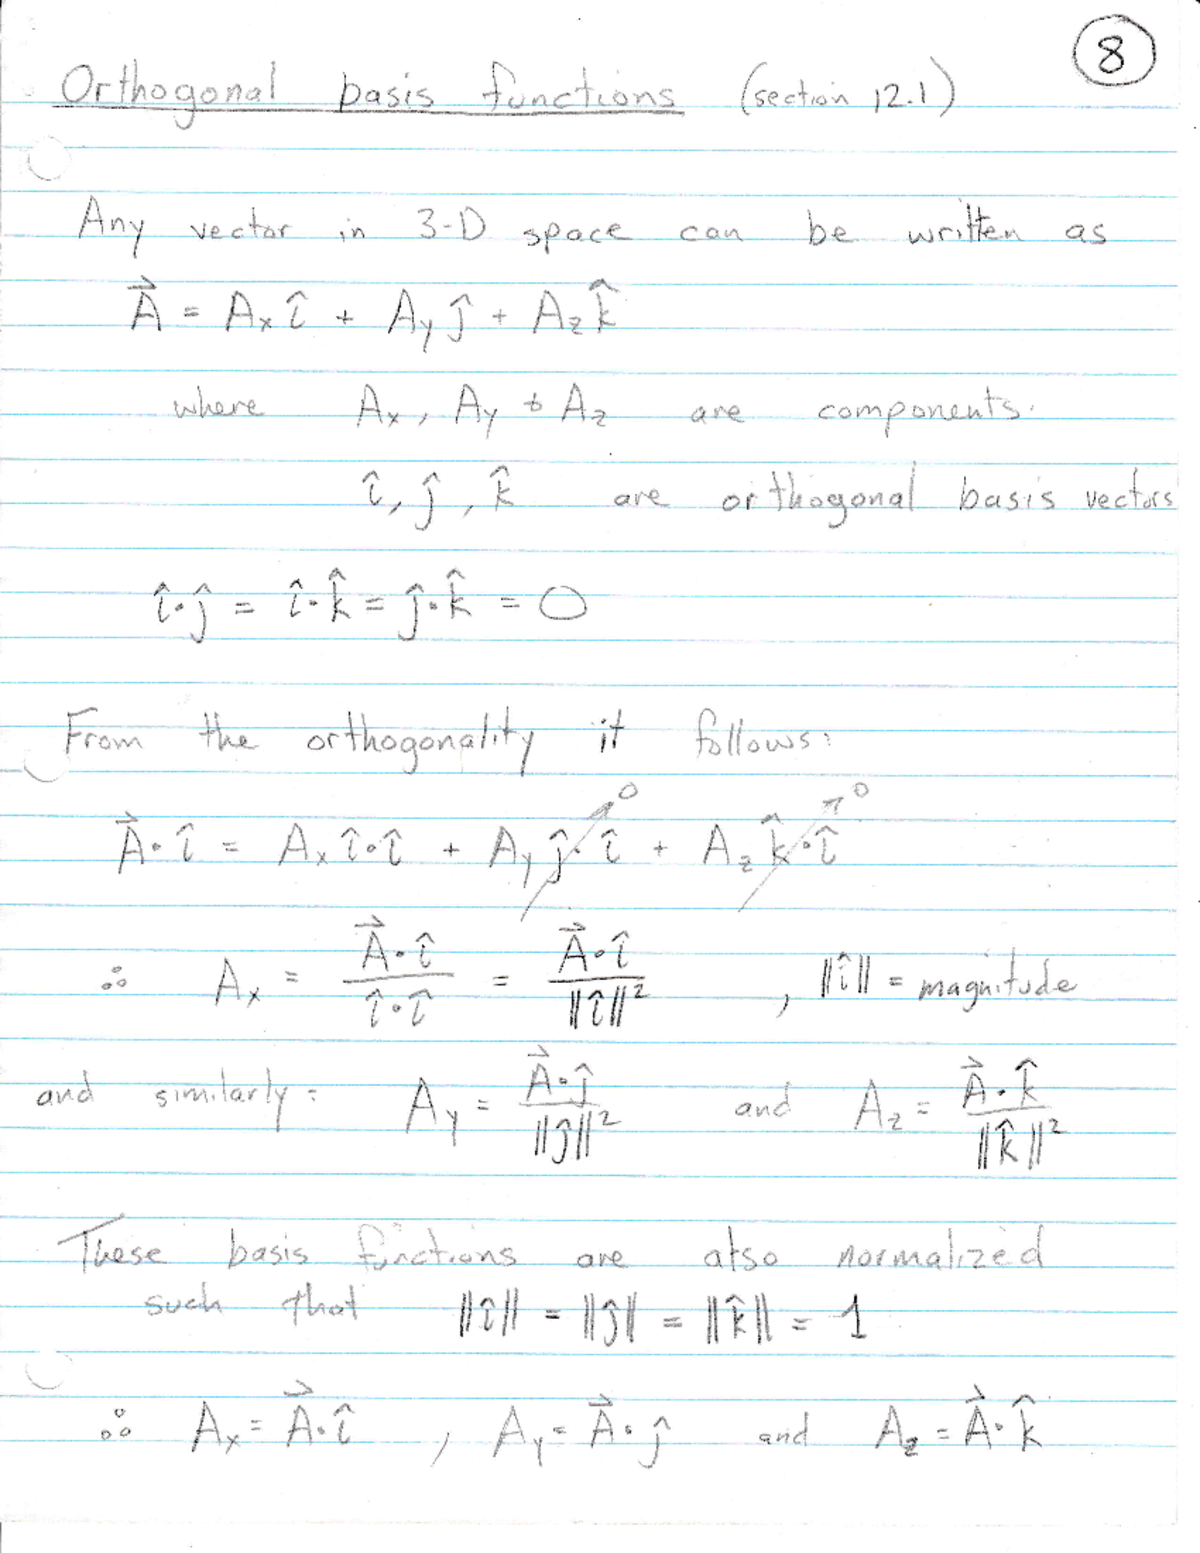 8
Orthogonal basis functions (section 12.1)
Any vector in 3-D space can be written as
A⃗ = Aₓ î + A_y ĵ + A_z k̂
where Aₓ, A_y & A_z are components.
î, ĵ, k̂ are orthogonal basis vectors
î·ĵ = î·k̂ = ĵ·k̂ = 0
From the orthogonality it follows:
A⃗·î = Aₓ î·î + A_y ĵ·î (→0) + A_z k̂·î (→0)
∴ Aₓ = (A⃗·î)/(î·î) = (A⃗·î)/‖î‖² , ‖î‖ = magnitude
and similarly: A_y = (A⃗·ĵ)/‖ĵ‖² and A_z = (A⃗·k̂)/‖k̂‖²
These basis functions are also normalized
such that ‖î‖ = ‖ĵ‖ = ‖k̂‖ = 1
∴ Aₓ = A⃗·î , A_y = A⃗·ĵ and A_z = A⃗·k̂